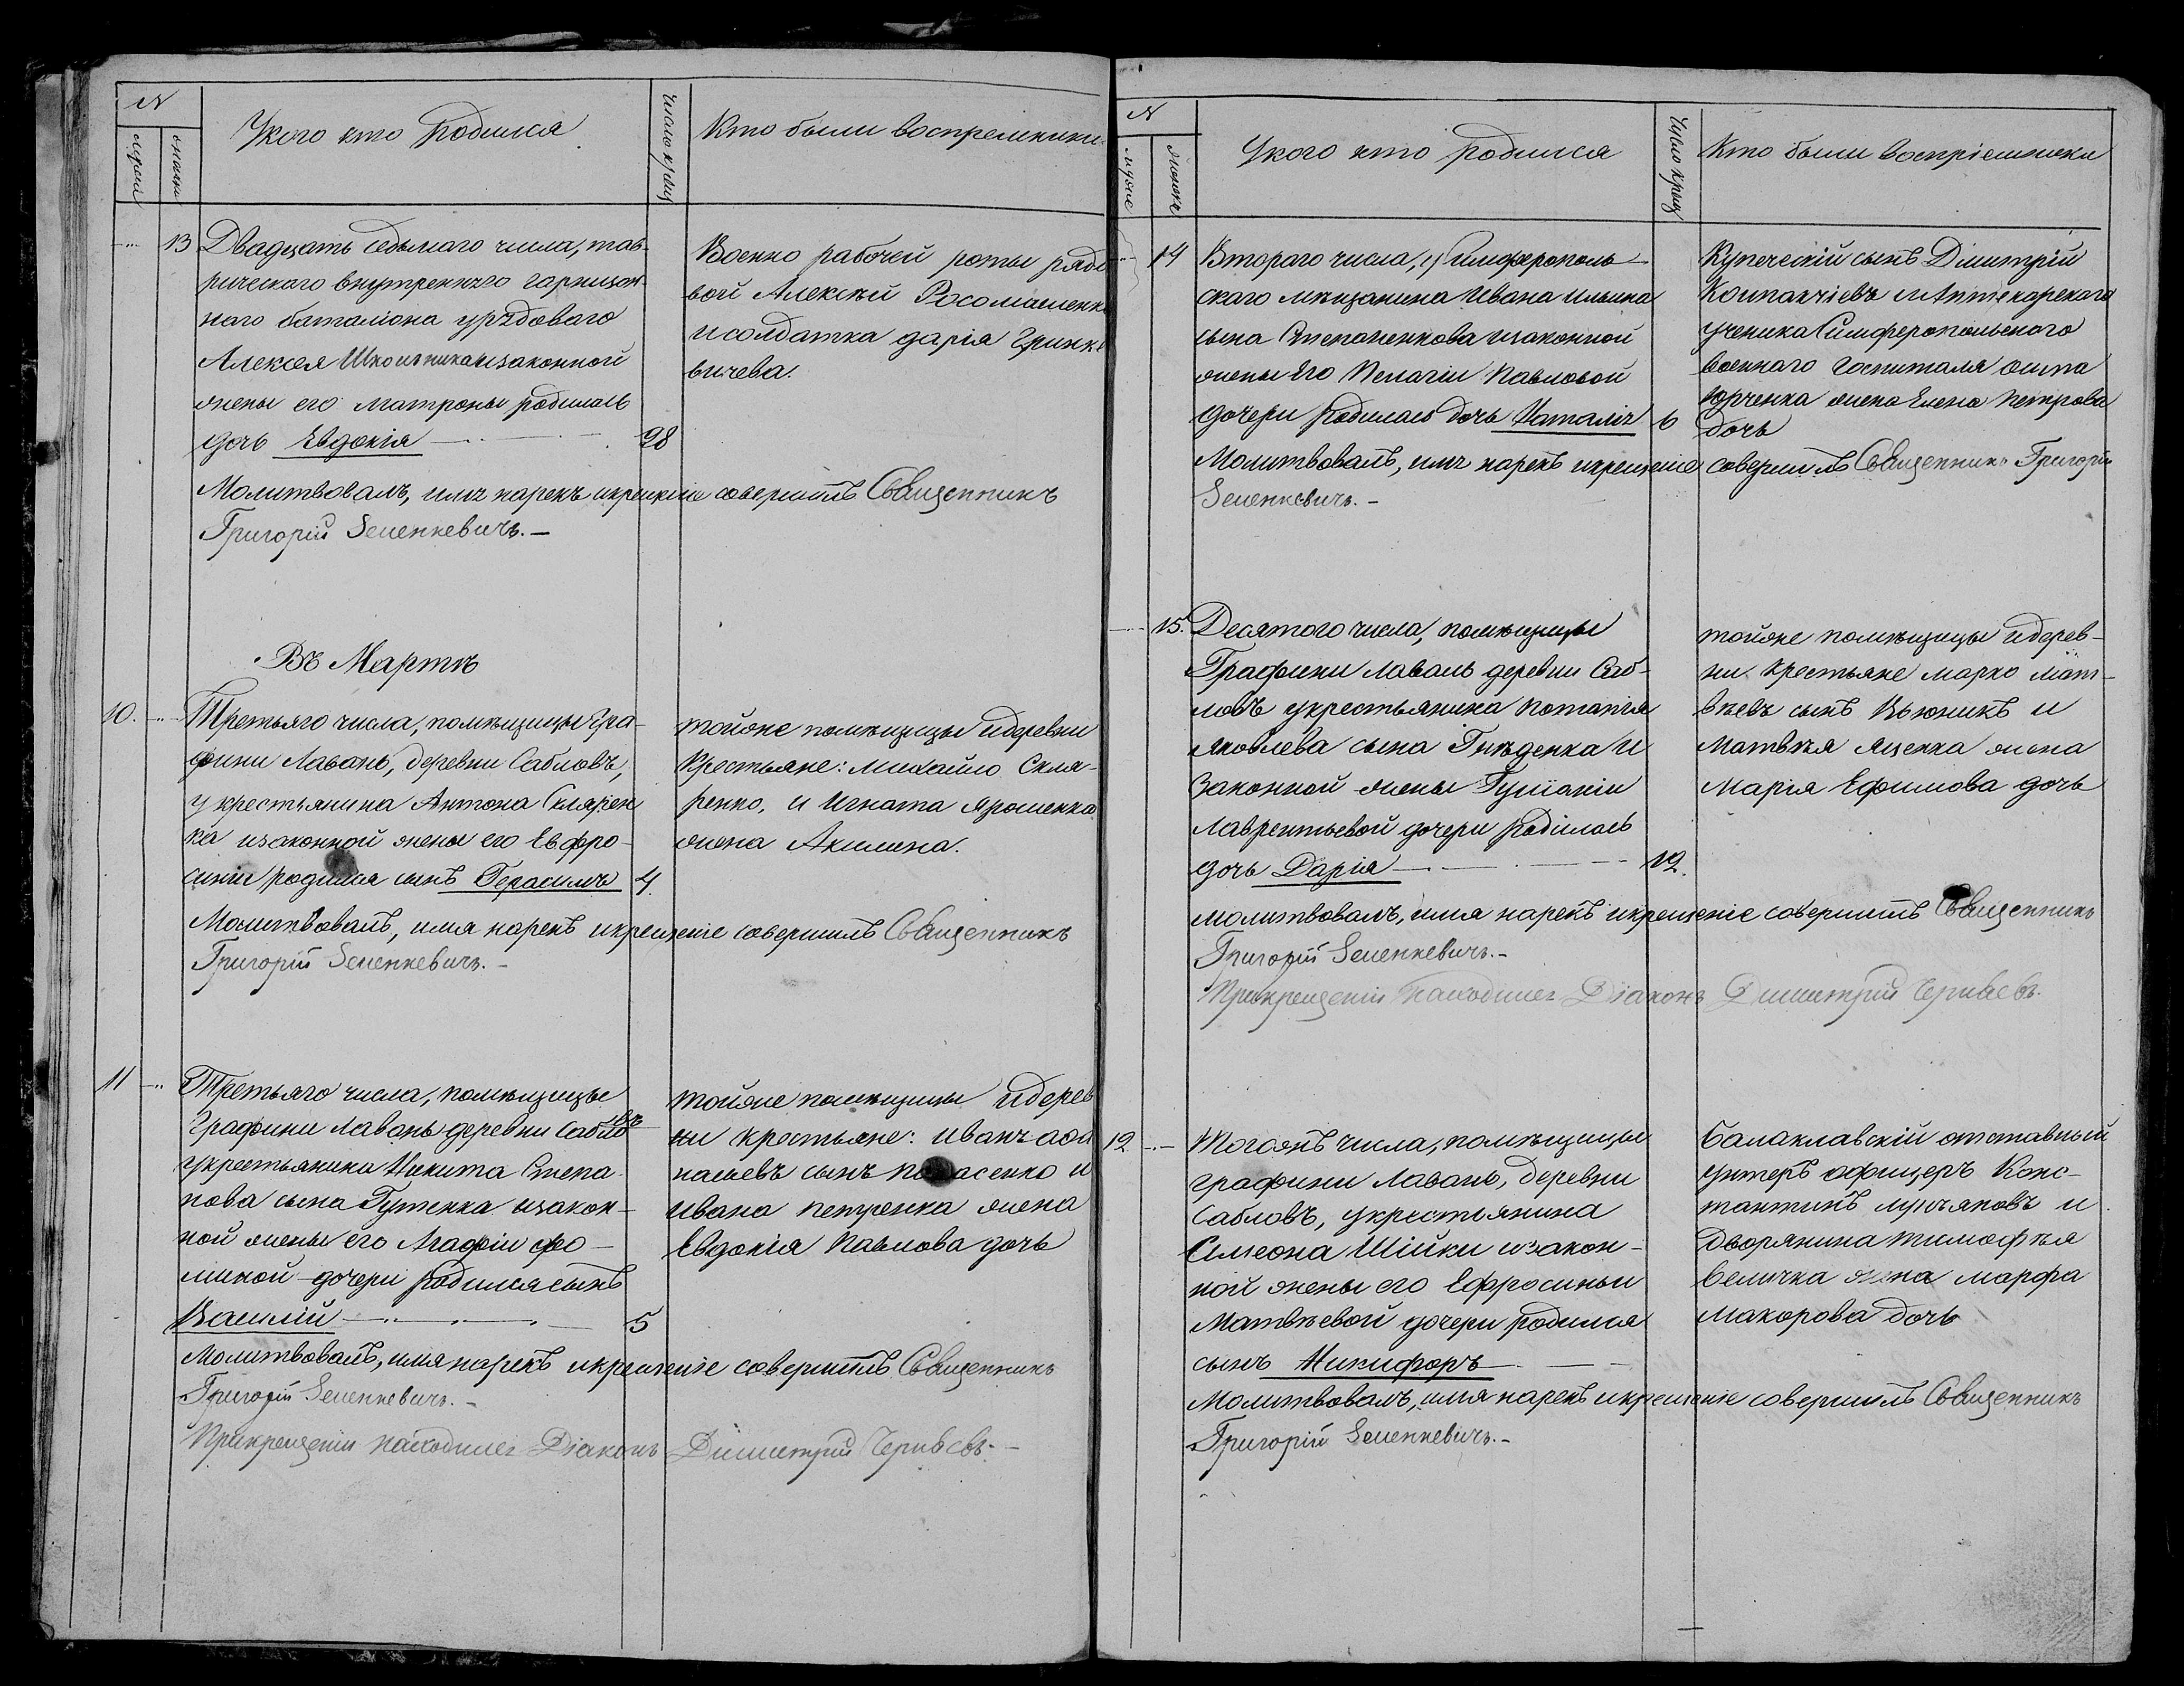 N
мужеск
женск
У кого кто родился
Число крещ
Кто были воспремники
13 Двадцать седьмаго числа, тав-
рическаго внутренняго гарнизон-
наго баталiона урядоваго
Алексея Школьника и законной
жены его Матроны родилась
дочь Евдокiя 28
Военно рабочей роты рядо
вой Алексѣй Росомашенко
и солдатка дарiя Гринке
вичева.
Молитвовалъ, имя нарекъ и крещенiе совершилъ Священникъ
Григорiй Зененкевичъ.
Въ Мартѣ
10. Третьяго числа, помѣщицы Гра-
фини Лаваль, деревни Сабловъ,
у крестьянина Антона Скларен
ка и законной жены его Евфро-
синiи родился сынъ Герасимъ 4.
тойже помѣщицы и деревни
Крестьяне: Михайло Скла-
ренко, и Игната Ярошенка
жена Акилина.
Молитвовалъ, имя нарекъ и крещенiе совершилъ Священникъ
Григорiй Зененкевичъ.
11 Третьяго числа, помѣщицы
Графини Лаваль деревни Сабловъ
у крестьянина Никита Степа
нова сына Гутенка и закон-
ной жены его Агафiи фо-
миной дочери родился сынъ
Василiй 5
тойже помѣщицы и дерев
ни крестьяне: Иванъ афа
насьевъ сынъ и
Ивана Петренка жена
Евдокiя Павлова дочь
Молитвовалъ, имя нарекъ и крещенiе совершилъ Священникъ
Григорiй Зененкевичъ.
При крещенiи находился Дiаконъ Димитрiй Чернѣевъ.
N
мужс
женск
У кого кто родился
Число крещ
Кто были воспрiемники
14 Втораго числа, у Симферополь
скаго мѣщанина Ивана Ильина
сына Степаненкова и законной
жены Его Пелагiи Павловой
дочери родилась дочь Наталiя 6
Купеческiй сынъ Димитрiй
Колпакчiевъ и Аптекарскаго
ученика Симферопольскаго
военнаго Госпиталя осипа
Юрченка жена Елена Петрова
дочь
Молитвовалъ, имя нарекъ и крещенiе совершилъ Священникъ Григорiй
Зененкевичъ.
15. Десятого числа, помѣщицы
Графини Лаваль деревни Саб-
ловъ у крестьянина Потапiя
Яковлева сына Гнѣденка и
Законной жены Гулiанiи
Лаврентьевой дочери родилась
дочь Дарiя 12.
тойже помѣщицы и дерев-
ни крестьяне Марко Мат-
вѣевъ сынъ Вьюникъ и
Матвѣя Яценка жена
Марiя Ефимова дочь
Молитвовалъ, имя нарекъ и крещенiе совершилъ Священникъ
Григорiй Зененкевичъ.
При крещенiи находился Дiаконъ Димитрiй Чернѣевъ.
12 Тогожъ числа, помѣщицы
графини Лаваль, деревни
Сабловъ, у крестьянина
Симеона Шiйки и закон-
ной жены его Ефросиньи
Матвѣевой дочери родился
сынъ Никифоръ
Балаклавскiй отставный
Унтеръ офицеръ Конс-
тантинъ и
Дворянина тимофѣя
Величка жена марфа
Макорова дочь
Молитвовалъ, имя нарекъ и крещенiе совершилъ Священникъ
Григорiй Зененкевичъ.